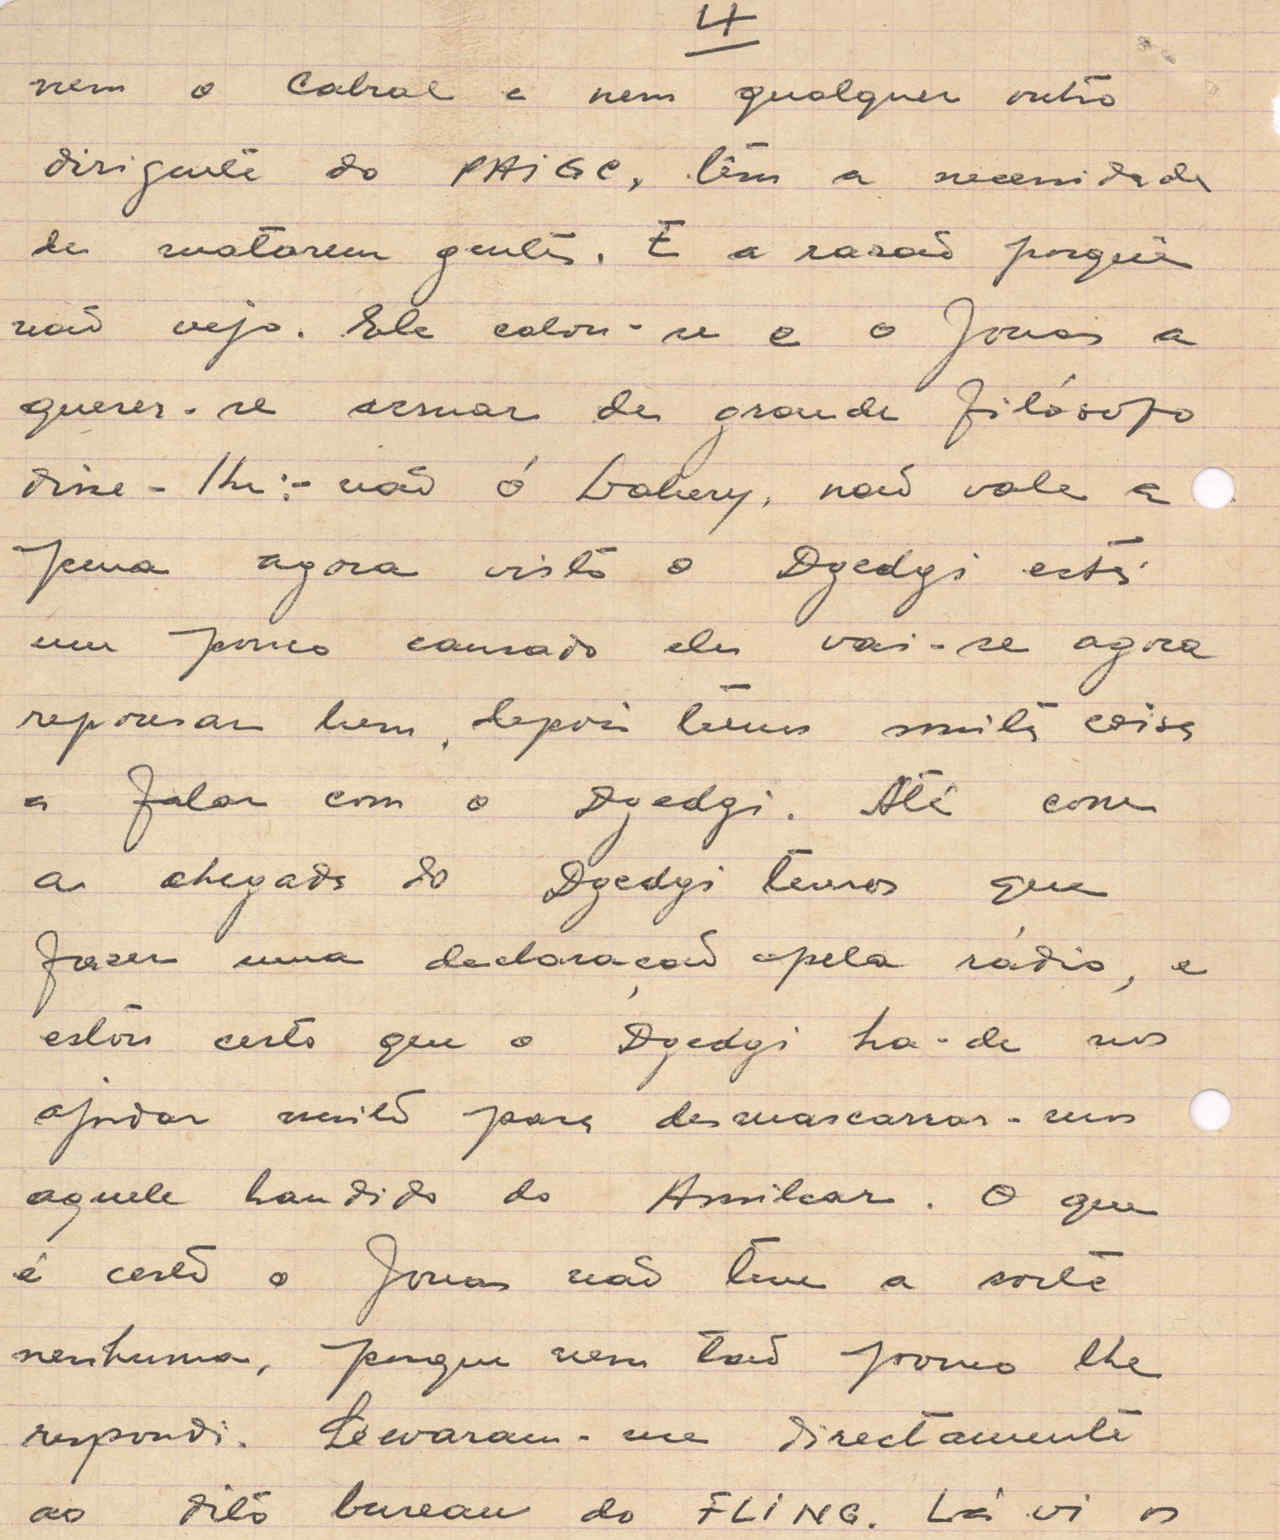 4
nem o Cabral e nem qualquer outro
dirigente do PAIGC, têm a necessidade
de matarem gentes. E a rasaõ porquê
naõ vejo. Ele calou-se e o Jonas a
querer-se armar de grande filósofo
disse-lhe:- naõ ó Lahery, naõ vale a
pena agora visto o Dgedgi está
um pouco cansado ele vai-se agora
repousar bem, depois temos muita coisa
a falar com o Dgedgi. Até com
a chegada do Dgedgi temos que
fazer uma declaraçaõ pela rádio, e
estou certo que o Dgedgi ha-de nos
ajudar muito para desmascarrar-mos
aquele bandido do Amilcar. O que
é certo o Jonas naõ teve a sorte
nenhuma, porque nem taõ pouco lhe
respondi. Levaram-me directamente
ao dito bureau do FLING. Lá vi os